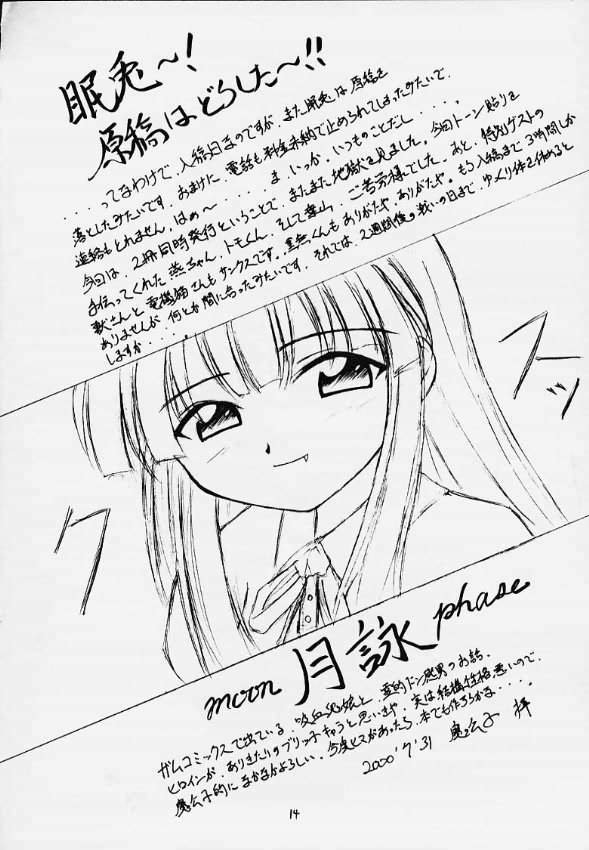 眠兎〜!
原稿はどうした〜!!
・・・・ってなわけで、入稿日まのですが、また眠兎は原稿を
落としたみたいです。おまけに、電話も料金未納で止められてしまったみたいで、
連絡もとれません。はぁ〜・・・・ま、いっか。いつものことだし・・・・。
今回は、2冊同時発行ということで、またまた地獄を見ました。今回トーン貼りを
手伝ってくれた ちゃん、トモくん、そして 山、ご苦労様でした。あと、特別ゲストの
さんと電機猫さんもサンクスです。 くんもありがたや、ありがたや。もう入稿まで3時間しか
ありませんが、何とか間に合ったみたいです。それでは、2週間後の戦いの日まで、ゆっくり体を休めると
しますか・・・・。
クスッ
moon 月詠 phase
ガムコミックスで出ている、吸血鬼娘と、霊的ドン感男のお話。
ヒロインが、ありきたりのブリッ子キャラと思いきや、実は結構性格悪いので、
的になかなかよろしい。今度ヒマがあったら、本でも作ろうかな・・・・。
2000'7'31 拝
14